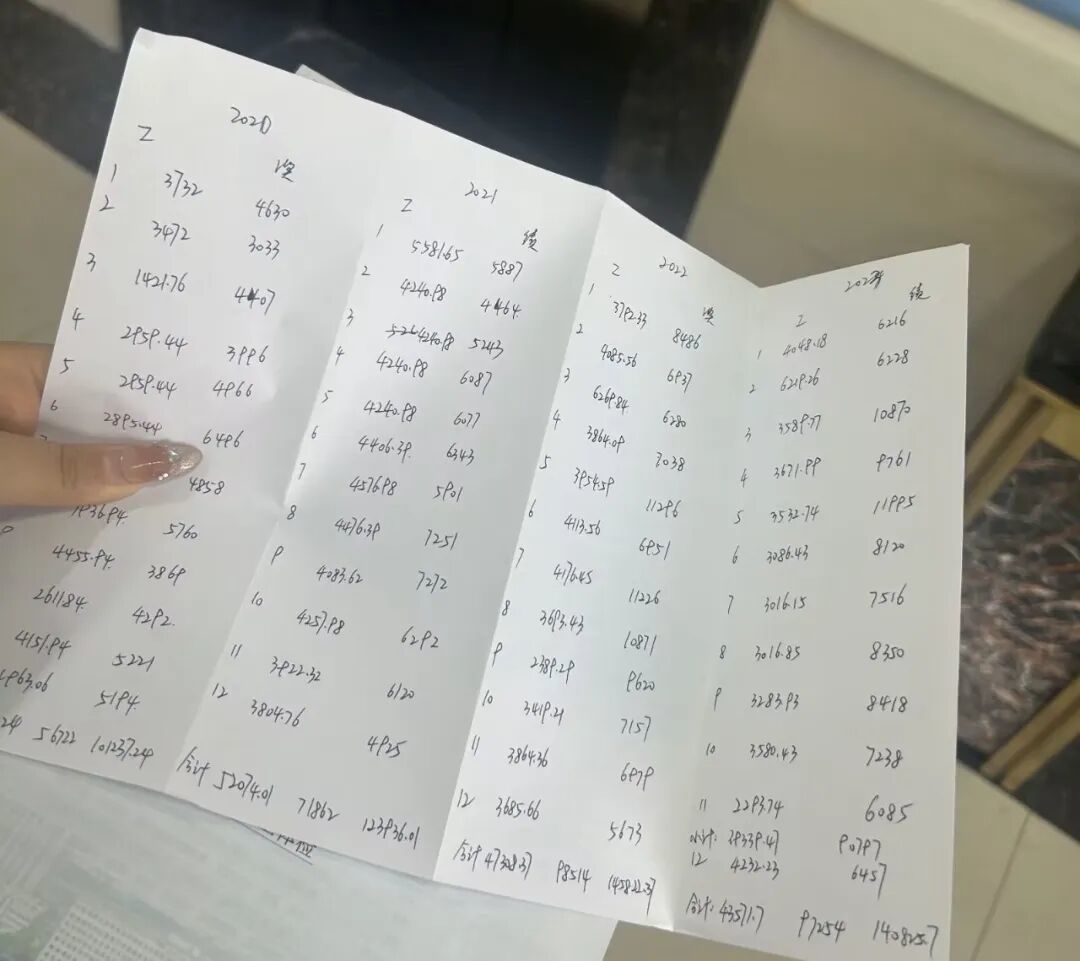 2020
Z 奖
1 3732 4630
2 3472 3033
3 1421.76 4407
4 2959.44 3996
5 2959.44 4966
6 2895.44 6496
4858
1936.94 5760
9 4455.94 3869
2611.84 4292.
4151.94 5221
963.06 5194
24 56722 101237.24
2021
Z 绩
1 5581.65 5887
2 4240.98 4464
3 4240.98 5243
4 4240.98 6087
5 4240.98 6077
6 4406.39. 6343
7 4576.98 5901
8 4476.39 7251
9 4083.62 7272
10 4257.98 6292
11 3922.32 6120
12 3804.76 4925
合计 52074.01 71862 123936.01
2022
Z 奖
1 3792.33 8486
2 4085.56 6937
3 6269.84 6280
4 3864.09 7038
5 3954.59 11296
6 4113.56 6951
7 4176.45 11226
8 3693.43 10871
9 2389.29 9620
10 3419.21 7157
11 3864.36 6979
12 3685.66 5673
合计 47308.37 98514 145822.37
2023年
Z 绩
1 4048.18 6216
2 6219.26 6228
3 3589.77 10870
4 3671.99 9761
5 3532.74 11995
6 3086.43 8120
7 3016.15 7516
8 3016.85 8350
9 3283.93 8418
10 3580.43 7238
11 2293.74 6085
小计: 39339.47 90797
12 4232.23 6457
合计: 43571.7 97254 140825.7